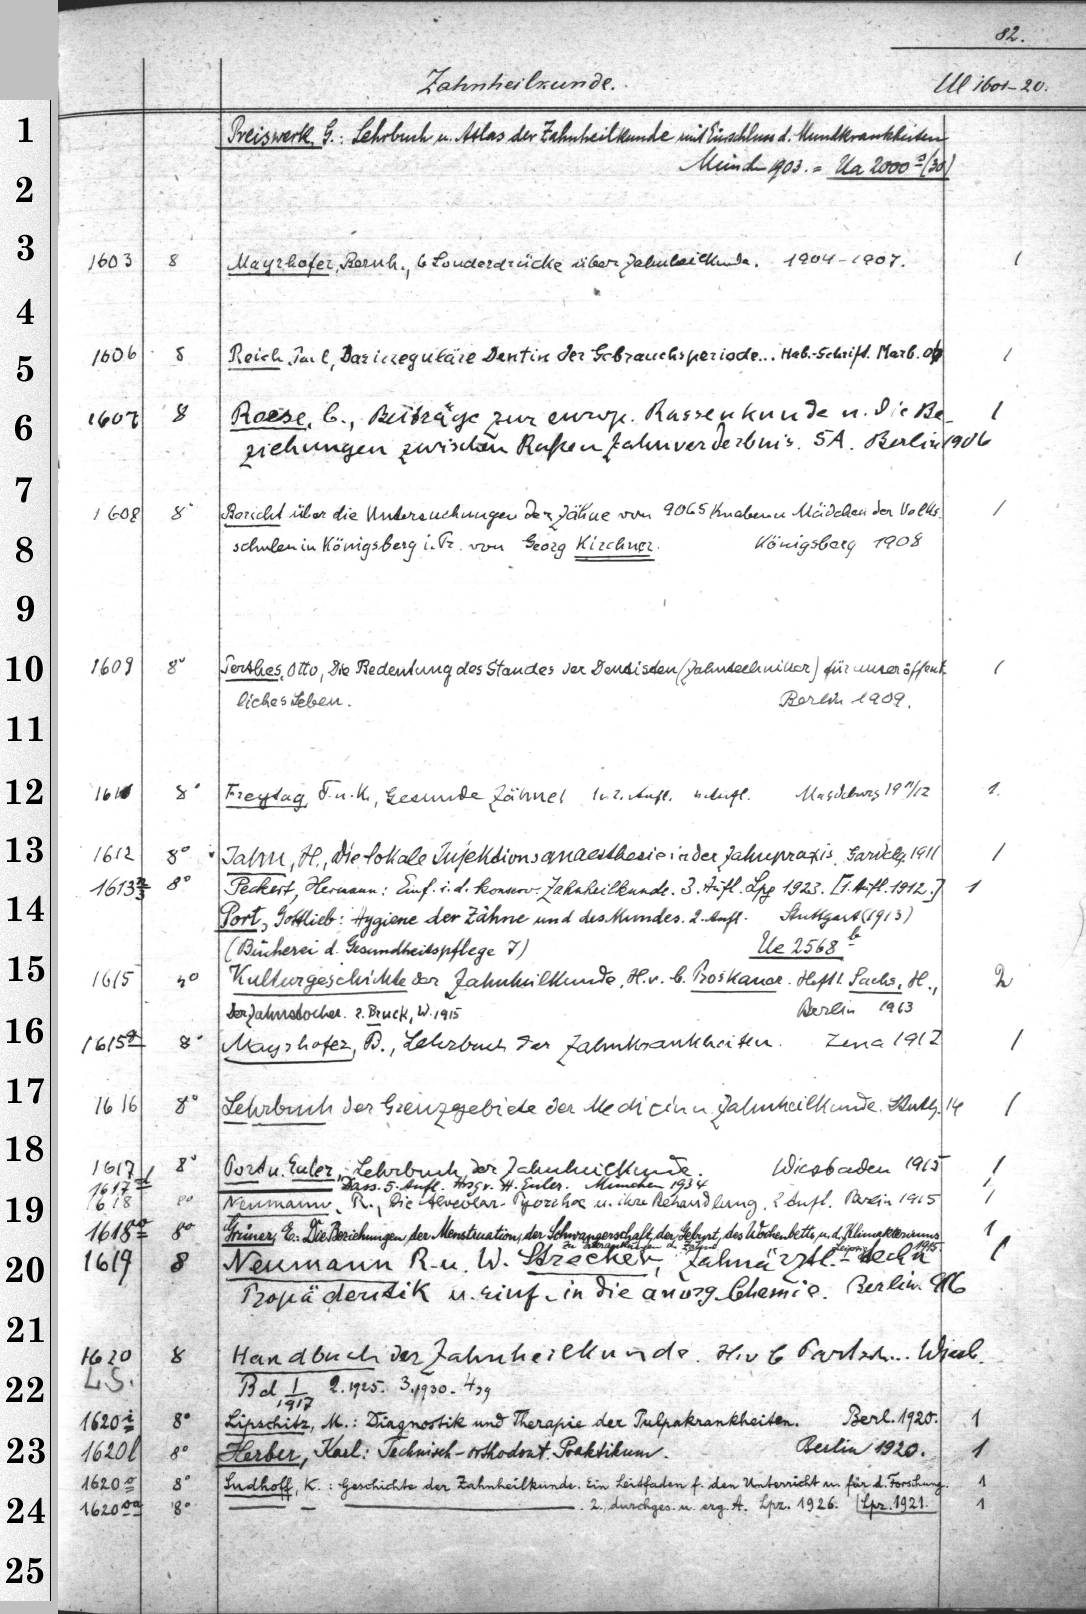 82.
Zahnheilkunde. Ul 1601-20.
1 Preiswerk, G.: Lehrbuch u. Atlas der Zahnheilkunde mit Einschluss d. Mundkrankheiten
2 München 1903. = Ua 2000 a (30)
3 1603 8 Mayrhofer, Bernh., 6 Sonderdrücke über Zahnheilkunde. 1904-1907. 1
4
5 1606 8 Reich, Paul, Das irreguläre Dentin der Gebrauchsperiode... Hab.-Schrift. Marb. 06 1
6 1607 8 Roese, C., Beiträge zur europ. Rassenkunde u. die Be- 1
ziehungen zwischen Rassen Zahnverderbnis. SA. Berlin 1906
7 1608 8° Bericht über die Untersuchungen der Zähne von 9065 Knaben u Mädchen der Volks- 1
8 schulen in Königsberg i. Pr. von Georg Kirchner. Königsberg 1908
9
10 1609 8° Perthes, Otto, Die Bedeutung des Standes der Dentisten (Zahntechniker) für unser öffent- 1
liches Leben. Berlin 1909.
11
12 161 8° Freytag, F. u. K., Gesunde Zähne! 1. u. 2. Aufl. Magdeburg 1911/12 1.
13 1612 8° Jahn, H., Die lokale Injektionsanaesthesie in der Zahnpraxis. Gardeleg. 1911 1
1613 8° Peckert, Hermann: Einf. i. d. konserv. Zahnheilkunde. 3. Aufl. Lpg 1923. [1. Aufl. 1912.] 1
14 Port, Gottlieb: Hygiene der Zähne und des Mundes. 2. Aufl. Stuttgart (1913)
(Bücherei d. Gesundheitspflege 7) Ue 2568 b
15 1615 4° Kulturgeschichte der Zahnheilkunde, H. v. C. Proskauer. Heft 1. Sachs, H., 2
Der Zahnstocher. 2. Bruck, W. 1915 Berlin 1913
16 1615a 8° Mayrhofer, B., Lehrbuch der Zahnkrankheiten. Jena 1912 1
17 1616 8° Lehrbuch der Grenzgebiete der Medicin u. Zahnheilkunde. Stuttg. 14 1
18 1617 8° Port u. Euler, Lehrbuch der Zahnheilkunde. Wiesbaden 1915 1
1617d Dass. 5. Aufl. Hrsg v. H. Euler. München 1934 1
19 1618 8° Neumann, R., Die Alveolar-Pyorrhoe u. ihre Behandlung. 2. Aufl. Berlin 1915 1
1618aa 8° Grüner, E.: Die Beziehungen der Menstruation, der Schwangerschaft, der Geburt, des Wochenbetts u. d. Klimakteriums 1
zu Erkrankungen d. Zähne Leipzig 1915.
20 1619 8 Neumann R. u. W. Strecker, Zahnärztl.-techn 1
Propädeutik u. Einf. in die anorg. Chemie. Berlin 916
21 1620 8 Handbuch der Zahnheilkunde. H. v C Partsch... Wiesb.
22 LS. Bd 1 1917 2. 1925. 3. 1930. 4 39
1620i 8° Lipschitz, M.: Diagnostik und Therapie der Pulpakrankheiten. Berl. 1920. 1
23 1620l 8° Herber, Karl: Technisch-orthodont. Praktikum. Berlin 1920. 1
1620o 8° Sudhoff, K.: Geschichte der Zahnheilkunde. Ein Leitfaden f. den Unterricht u. für d. Forschung. 1
24 1620oa 8° 2., durchges. u. erg. A. Lpz. 1926. Lpz. 1921. 1
25